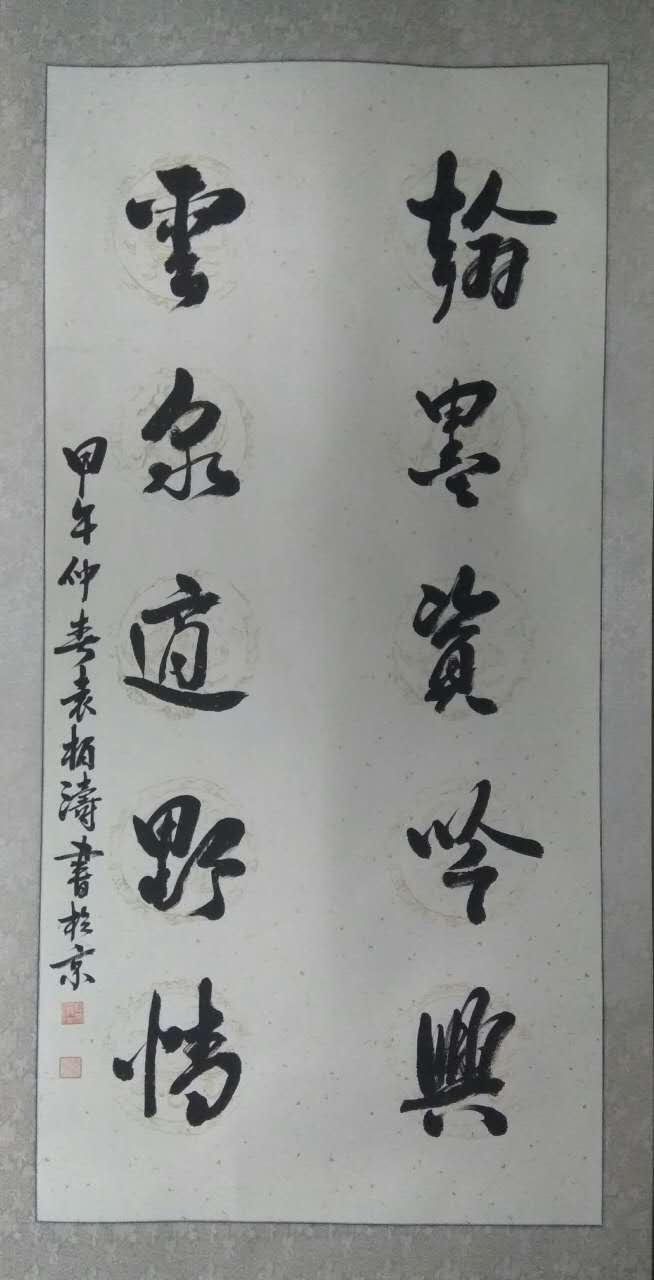 翰墨資吟興
雲泉適野情
甲午仲春袁柏濤書於京